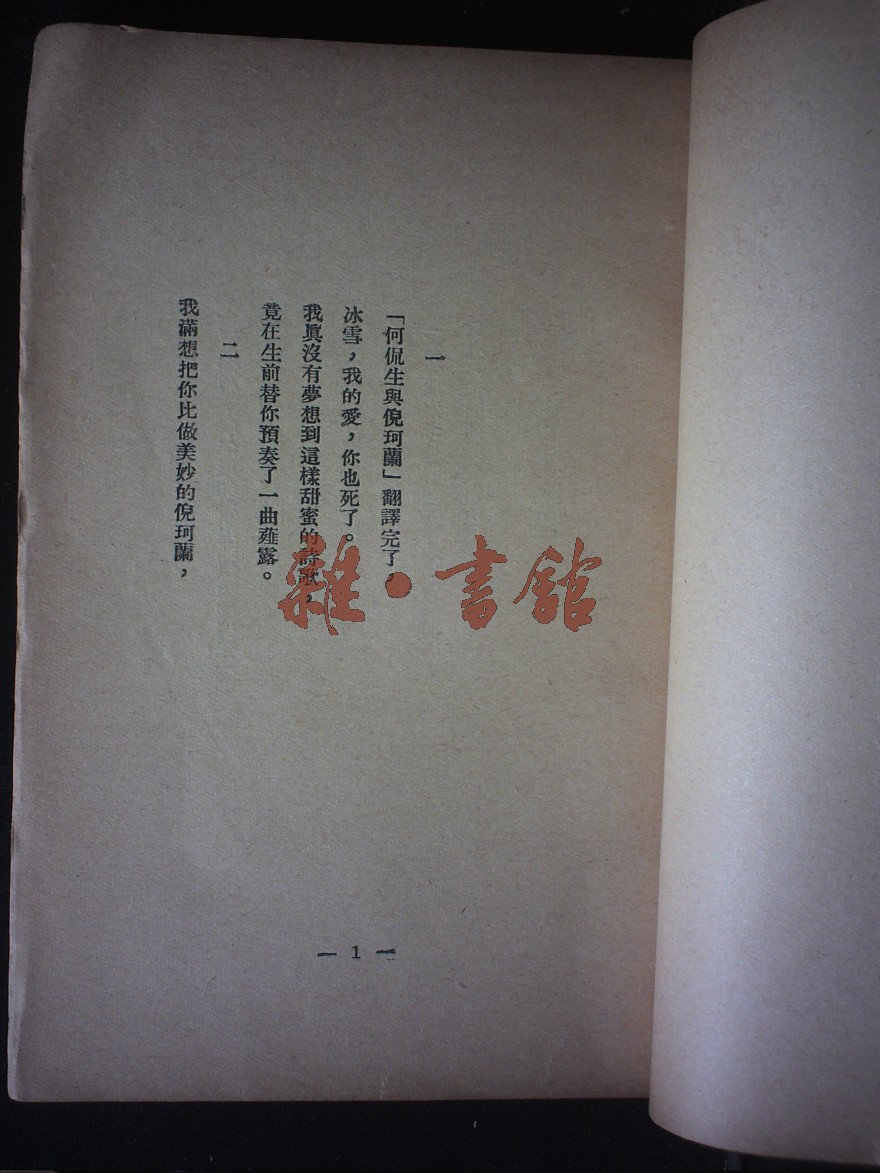 一
「何侃生與倪珂蘭」翻譯完了，
冰雪，我的愛，你也死了。
我眞沒有夢想到這樣甜蜜的詩歌，
竟在生前替你預奏了一曲薤露。
二
我滿想把你比做美妙的倪珂蘭，
— 1 —
雜·書館